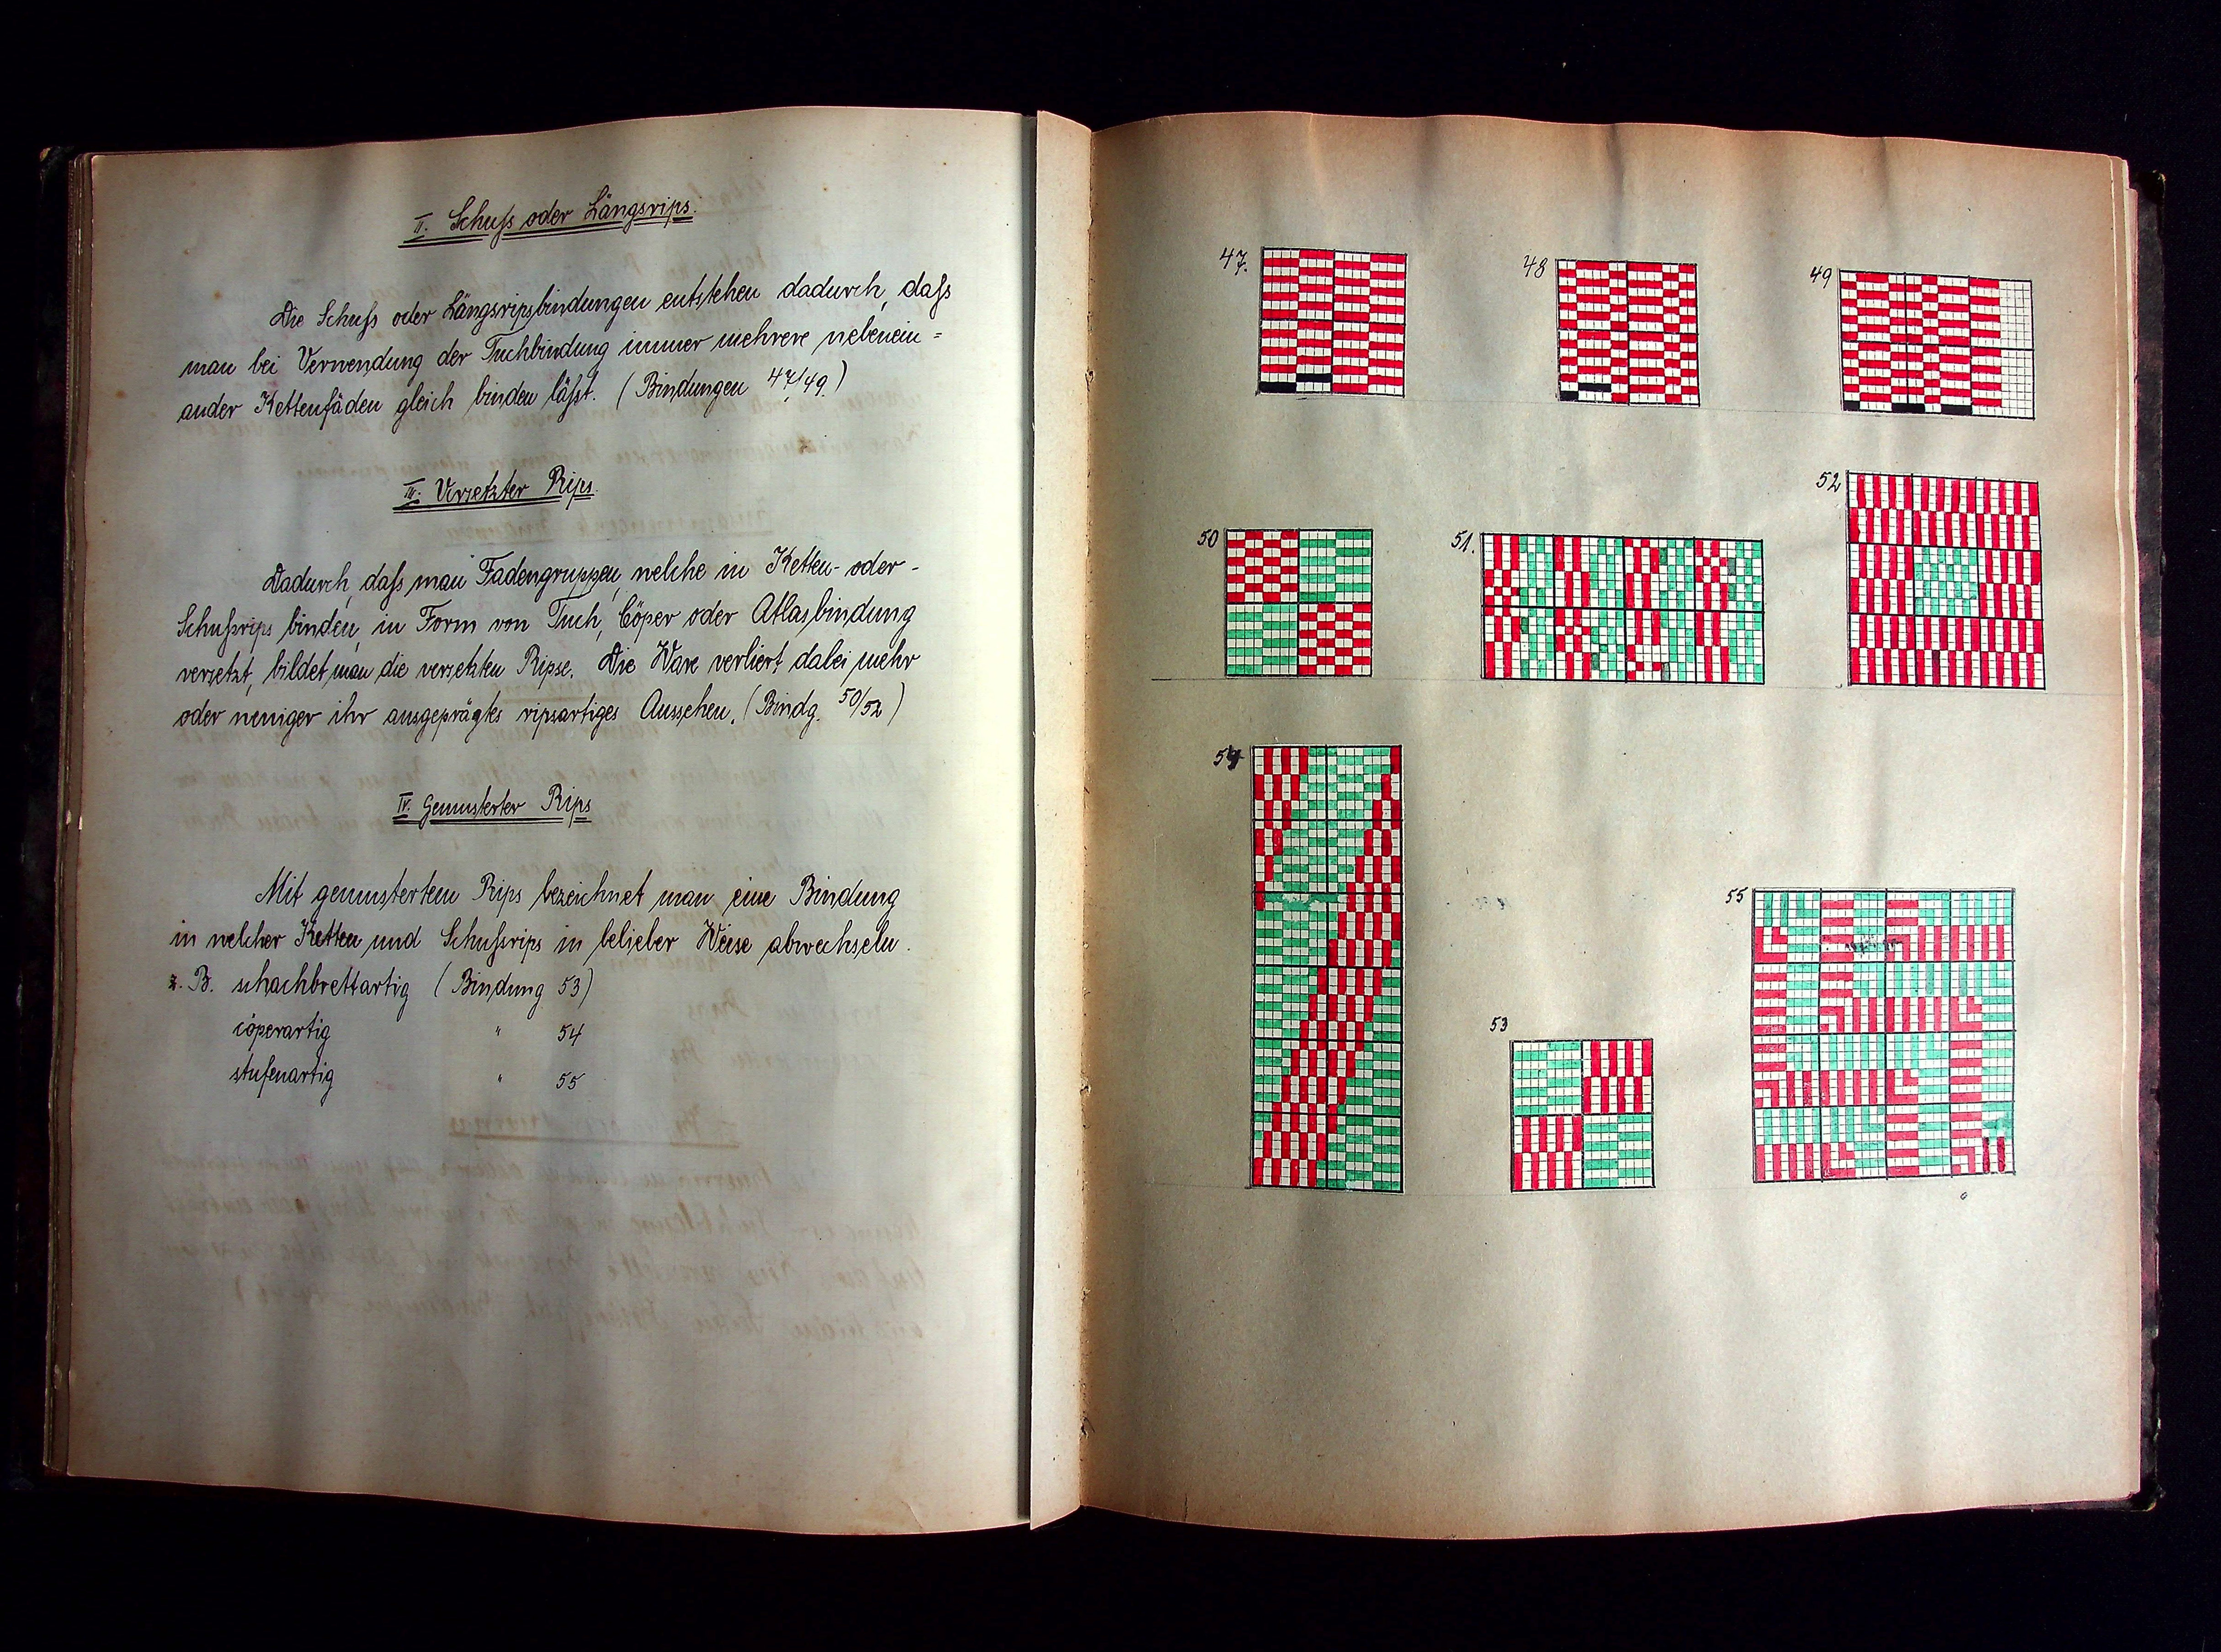 II. Schuss oder Längsrips.
Die Schuss oder Längsripsbindungen entstehen dadurch, dass
man bei Verwendung der Tuchbindung immer mehrere nebenein=
ander Kettenfäden gleich binden lässt. (Bindungen 47/49.)
III. Versetzter Rips.
Dadurch, dass man Fadengruppen, welche in Ketten- oder-
Schussrips binden, in Form von Tuch, Cöper oder Atlasbindung
versetzt, bildet man die versetzten Ripse. Die Ware verliert dabei mehr
oder weniger ihr ausgeprägtes ripsartiges Aussehen. (Bindg. 50/52)
IV. Gemusterter Rips
Mit gemustertem Rips bezeichnet man eine Bindung
in welcher Ketten und Schussrips in belieber Weise abwechseln.
z. B. schachbrettartig (Bindung 53)
cöperartig " 54
stufenartig " 55
47.
48
49
50
51.
52
54
55
53